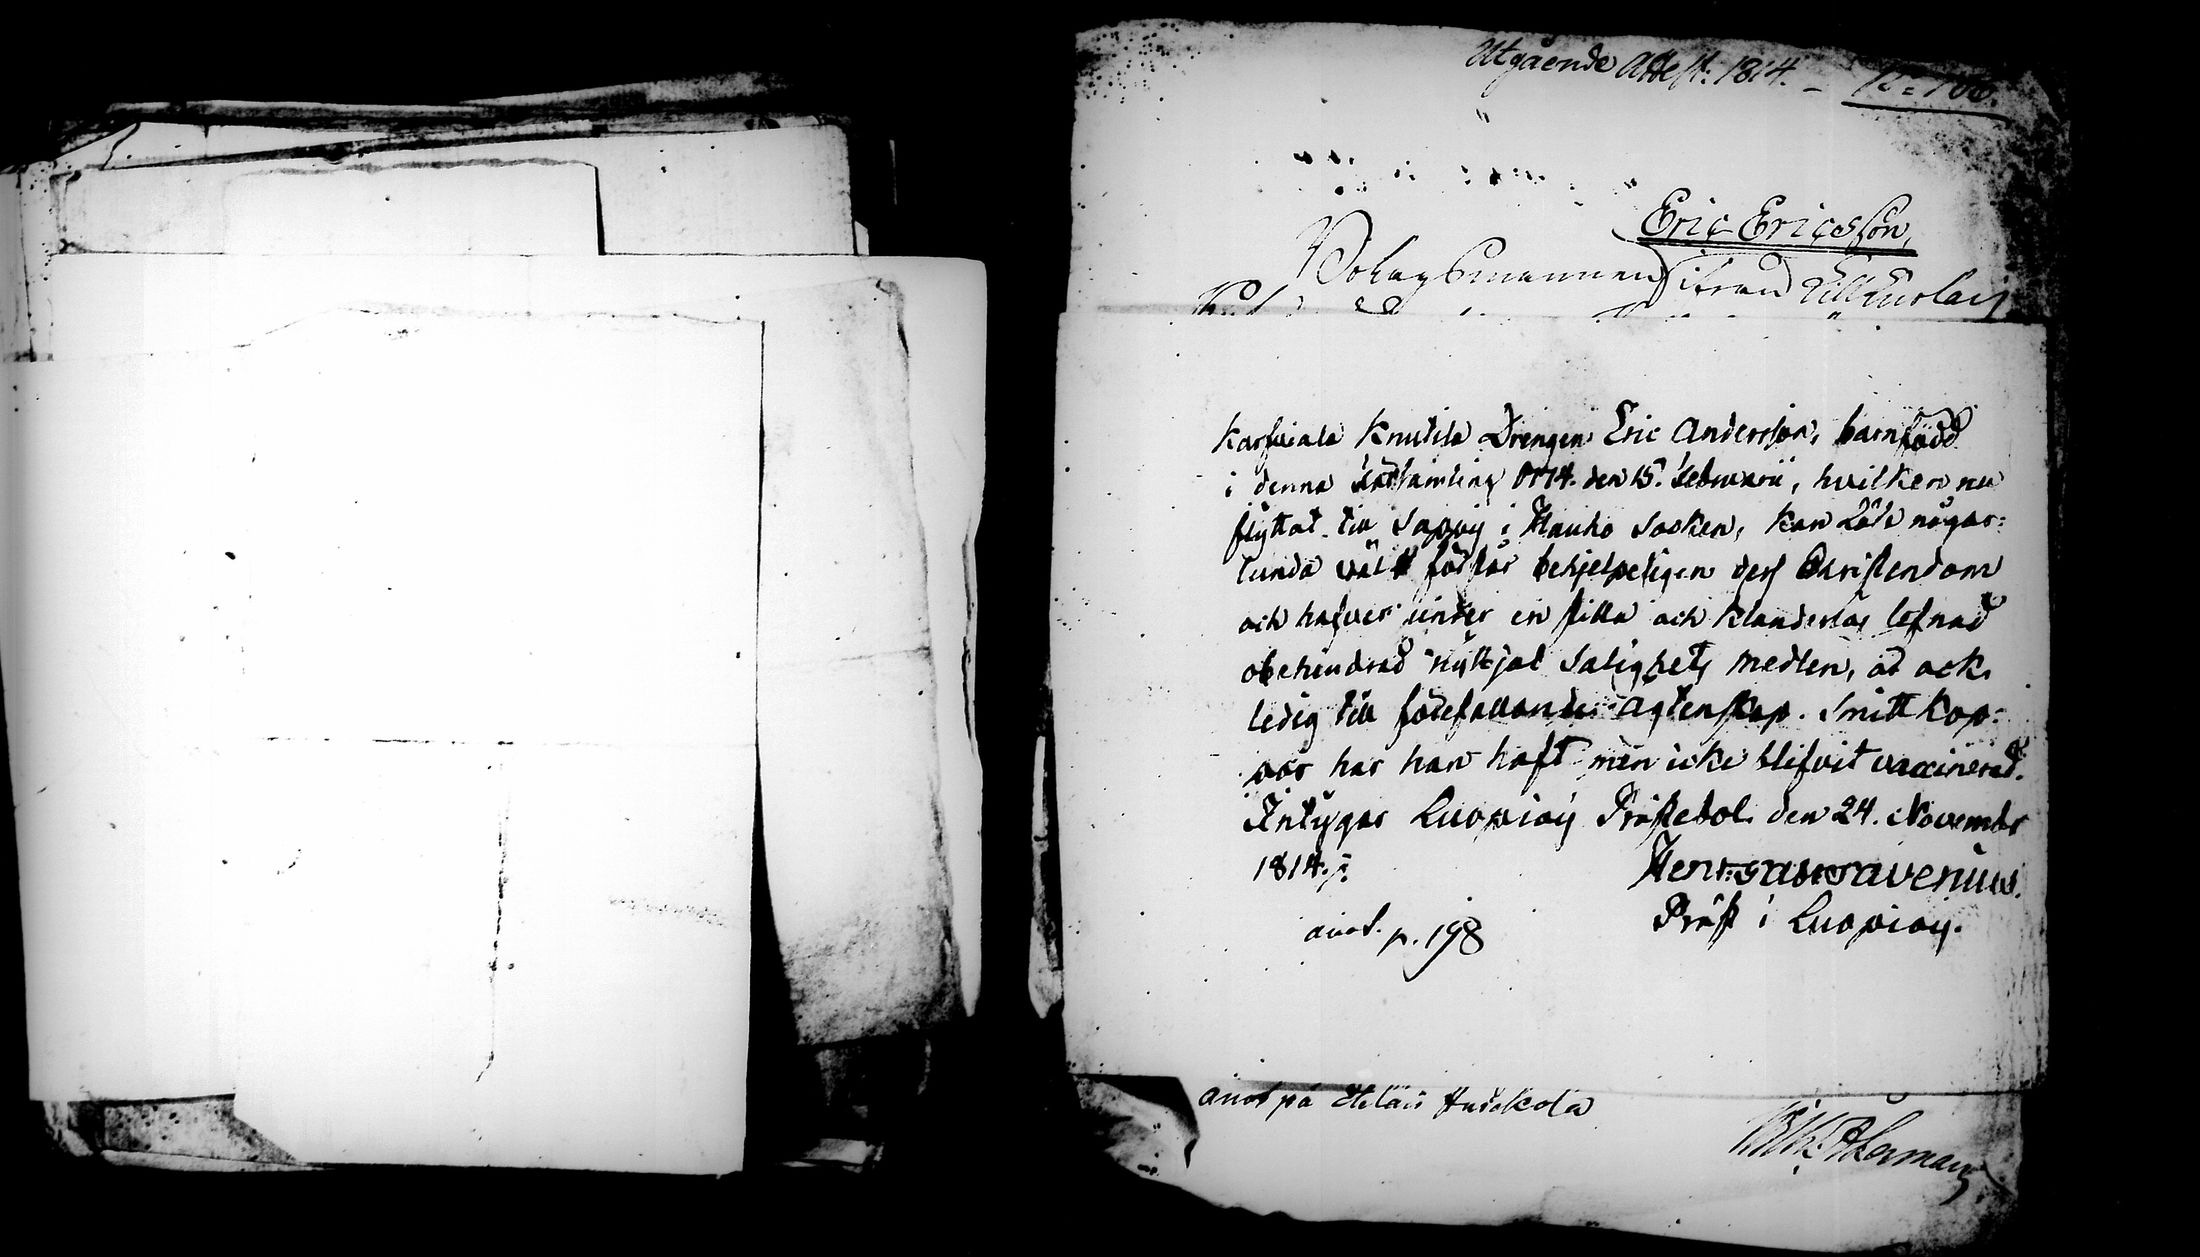 Utgående Attest: 1814. – No 106.
Eric Ericsson,
Bolagsmannen ifrån till
Karfviala Knutila Drengen Eric Andersson, barnfödd
i denna Församling 1774. den 15. Februarii, hvilken nu
flyttat till Sappij i Hauho Socken, kan Läsa någor-
lunda väl förstår behjelpeligen dess Christendom
och hafver under en stilla och klanderlös lefnad
obehindrad nyttjat Salighets medlen, är ock
ledig till förefallande ägtenskap. Smittkop-
por har han haft men icke blifvit vaccinerad.
Intygar Luopiois Prästebol den 24. November
1814.
Præst i Luopiois.
anot. p. 198
anot på